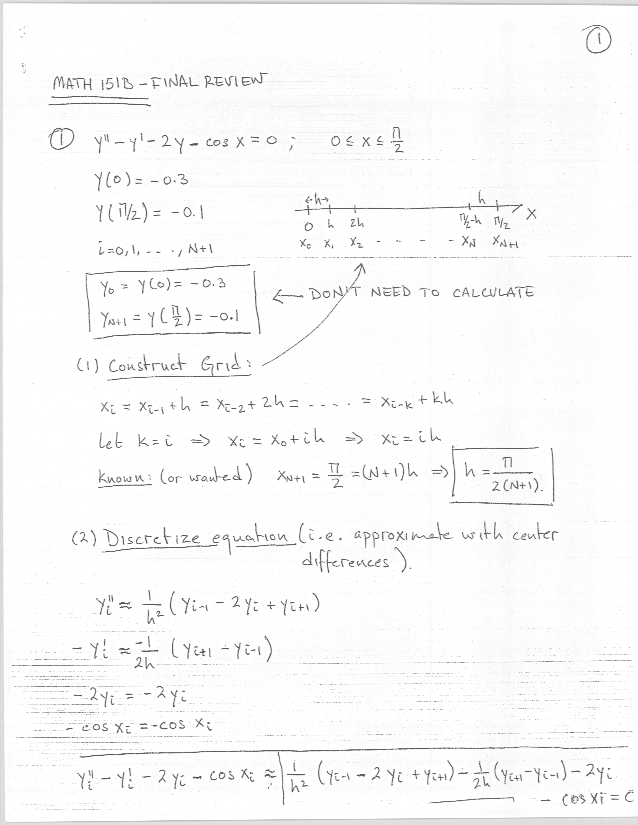 ①
MATH 151B - FINAL REVIEW
① y'' - y' - 2y - cos x = 0 ; 0 ≤ x ≤ π/2
y(0) = -0.3
y(π/2) = -0.1
i=0,1, - - ., N+1
←h→ h
0 h 2h π/2-h π/2 X
x₀ x₁ x₂ - - - - x_N x_N+1
y₀ = y(0) = -0.3
y_N+1 = y(π/2) = -0.1
← DON'T NEED TO CALCULATE
(1) Construct Grid:
x_i = x_i-1 + h = x_i-2 + 2h = - - - - = x_i-k + kh
let k=i ⇒ x_i = x₀ + ih ⇒ x_i = ih
Known: (or wanted) x_N+1 = π/2 = (N+1)h ⇒ h = π/2(N+1).
(2) Discretize equation (i.e. approximate with center
differences).
y_i'' ≈ 1/h² (y_i-1 - 2y_i + y_i+1)
- y_i' ≈ -1/2h (y_i+1 - y_i-1)
- 2y_i = -2y_i
- cos x_i = -cos x_i
y_i'' - y_i' - 2y_i - cos x_i ≈ 1/h² (y_i-1 - 2y_i + y_i+1) - 1/2h (y_i+1 - y_i-1) - 2y_i
- cos x_i =